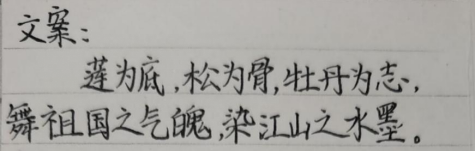 文案:
莲为底,松为骨,牡丹为志,
舞祖国之气魄,染江山之水墨。